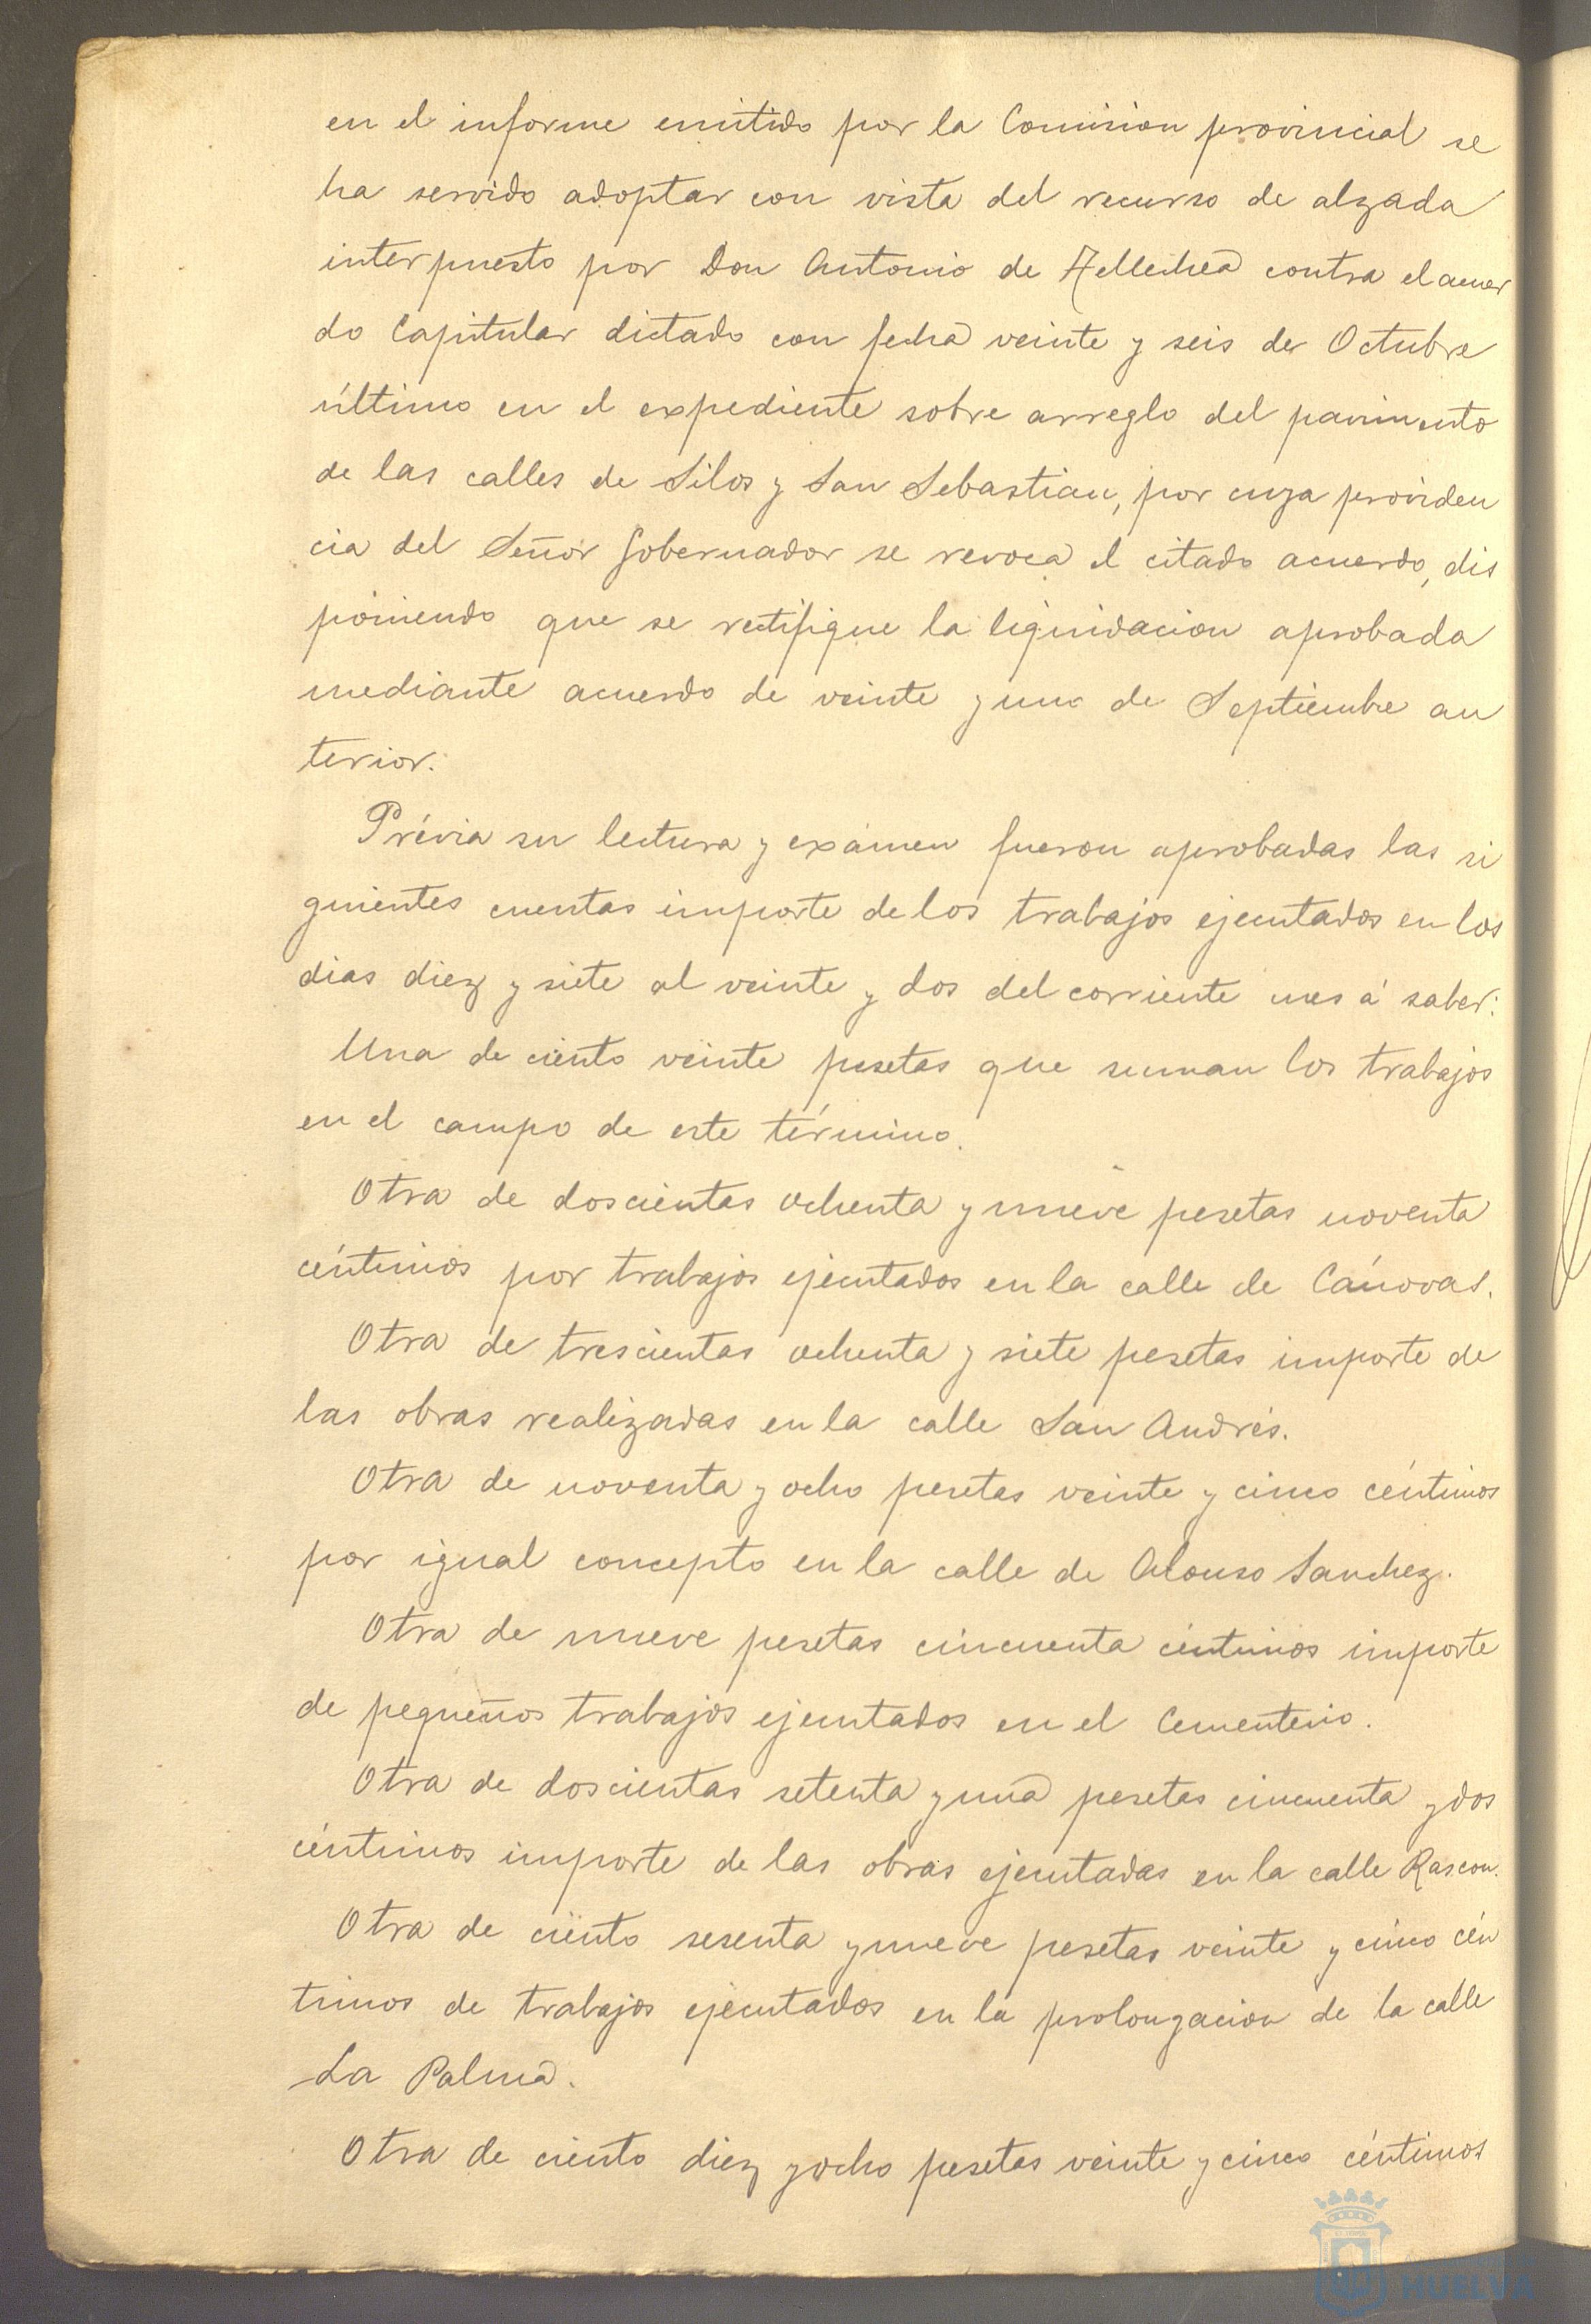 en el informe emitido por la Comision provincial se
ha servido adoptar con vista del recurso de alzada
interpuesto por Don Antonio de Tellechea contra el acuer
do Capitular dictado con fecha veinte y seis de Octubre
último en el expediente sobre arreglo del pavimento
de las calles de Silos y San Sebastian, por cuya providen
cia del Señor Gobernador se revoca el citado acuerdo, dis
poniendo que se rectifique la liquidacion aprobada
mediante acuerdo de veinte y uno de Septiembre an
terior.
Prévia su lectura y exámen fueron aprobadas las si
guientes cuentas importe de los trabajos ejecutados en los
dias diez y siete al veinte y dos del corriente mes á saber:
Una de ciento veinte pesetas que suman los trabajos
en el campo de este término.
Otra de doscientas ochenta y nueve pesetas noventa
céntimos por trabajos ejecutados en la calle de Cánovas.
Otra de trescientas ochenta y siete pesetas importe de
las obras realizadas en la calle San Andrés.
Otra de noventa y ocho pesetas veinte y cinco céntimos
por igual concepto en la calle de Alonso Sanchez.
Otra de nueve pesetas cincuenta céntimos importe
de pequeños trabajos ejecutados en el Cementerio.
Otra de doscientas setenta y una pesetas cincuenta y dos
céntimos importe de las obras ejecutadas en la calle Rascon.
Otra de ciento sesenta y nueve pesetas veinte y cinco cén
timos de trabajos ejecutados en la prolongacion de la calle
La Palma.
Otra de ciento diez y ocho pesetas veinte y cinco céntimos
HUELVA